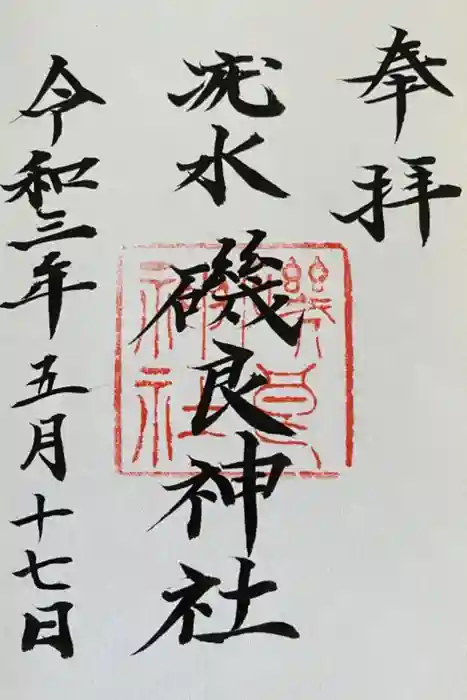 奉拝
疣水磯良神社
令和三年五月十七日
磯良
神社